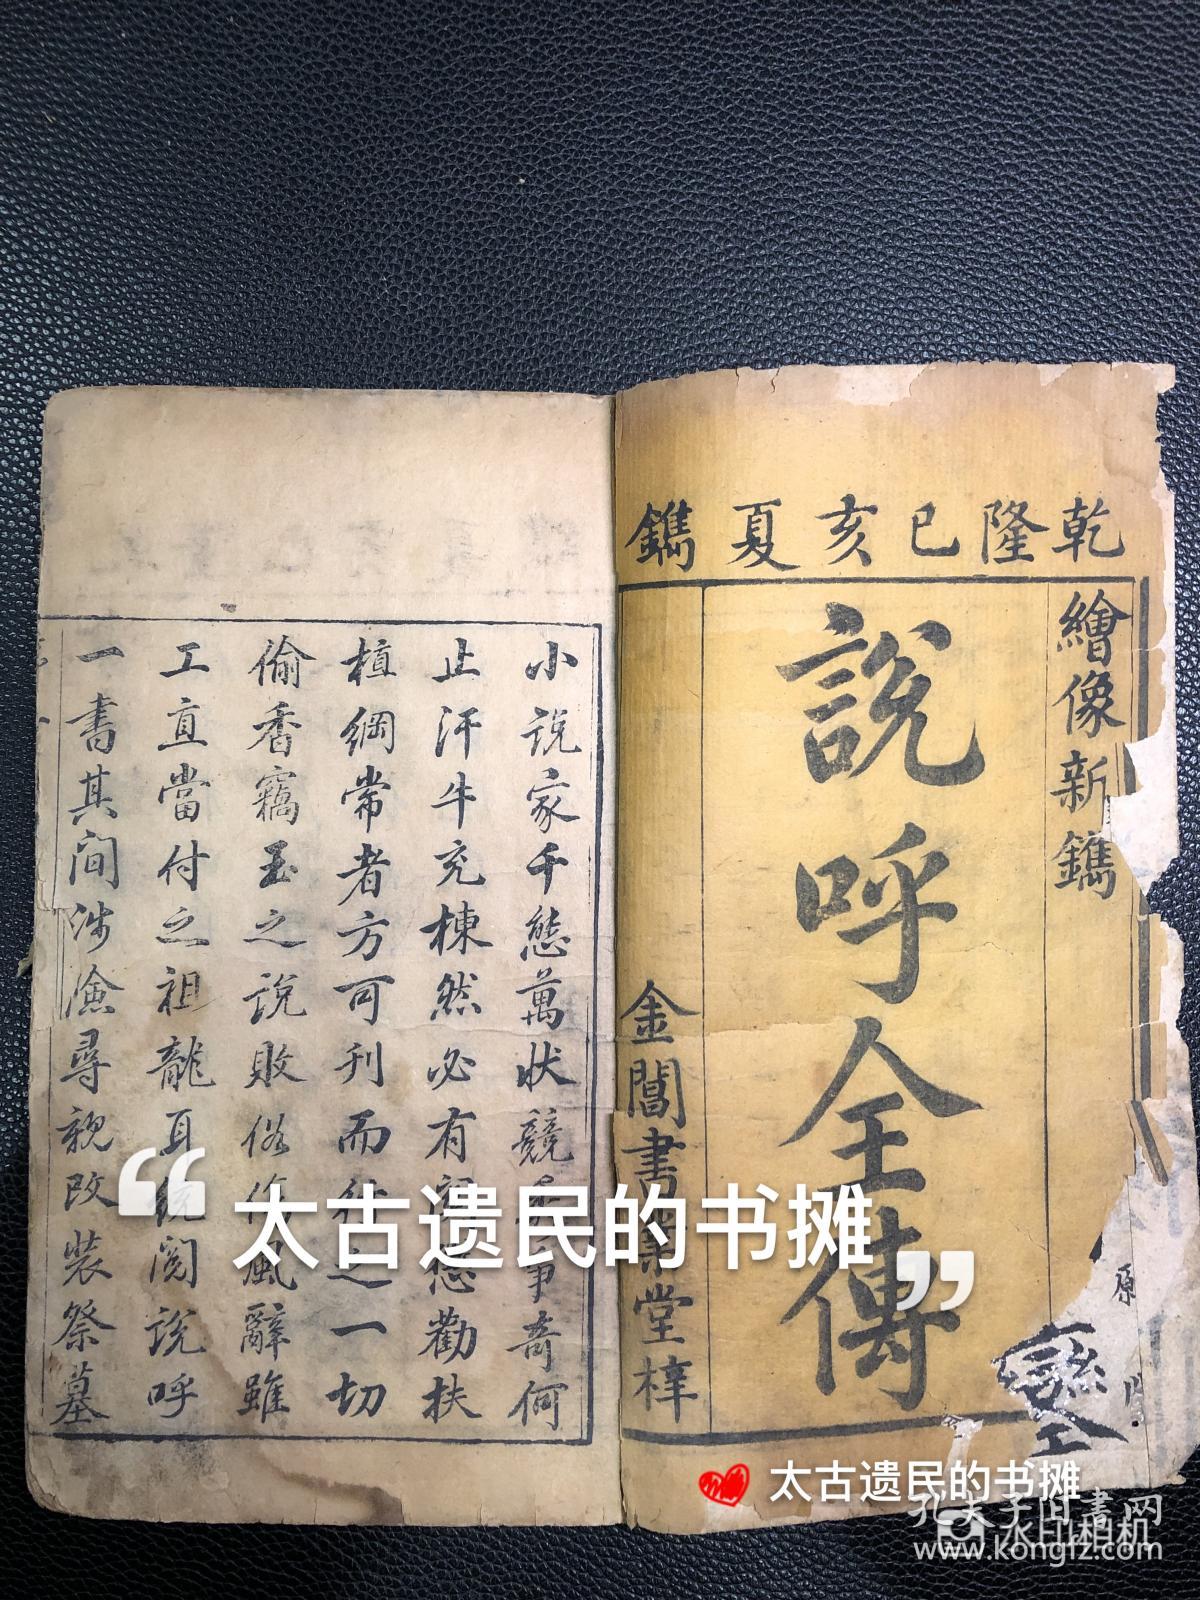 乾隆己亥夏鐫
繪像新鐫
說呼全傳
金閶書業堂梓
小説家千態萬狀競秀爭奇何
止汗牛充棟然必有關懲勸扶
植綱常者方可刊而行之一切
偷香竊玉之説敗俗傷風辭雖
工直當付之祖龍耳統閲説呼
一書其间涉險尋親改装祭墓
原
“太古遗民的书摊”
太古遗民的书摊
孔夫子旧书网
水印相机
www.kongfz.com